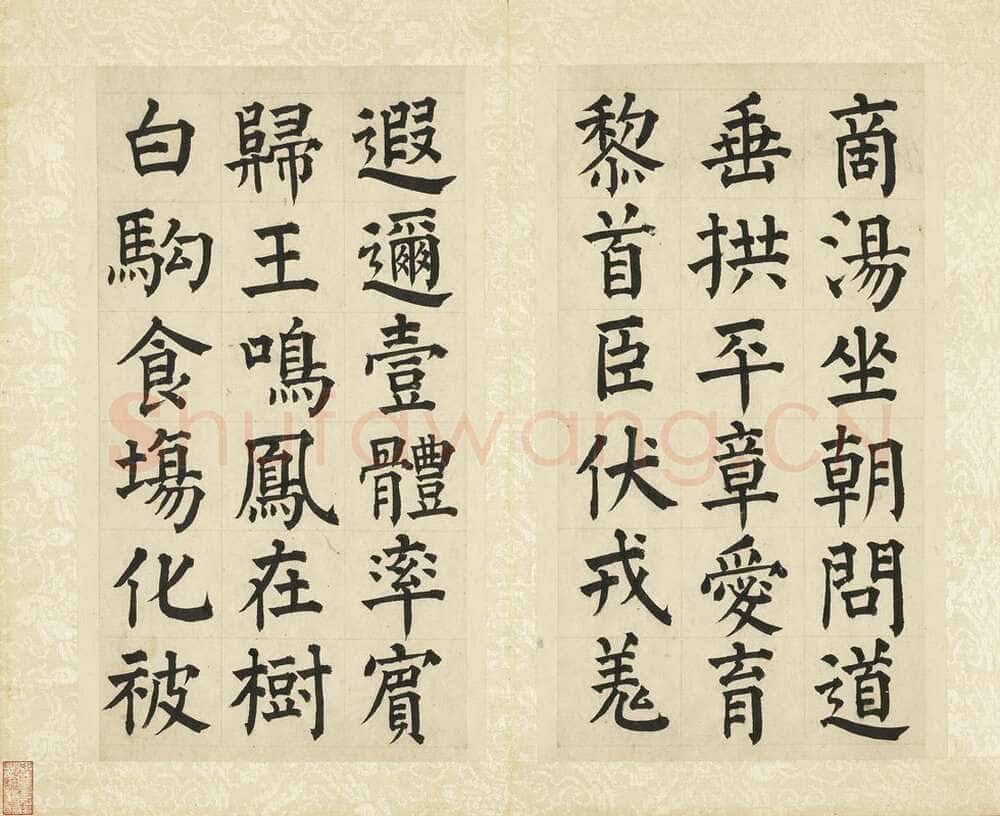 商湯坐朝問道
垂拱平章愛育
黎首臣伏戎羗
遐邇壹體率賓
歸王鳴鳳在樹
白駒食塲化被
Shufawang.CN